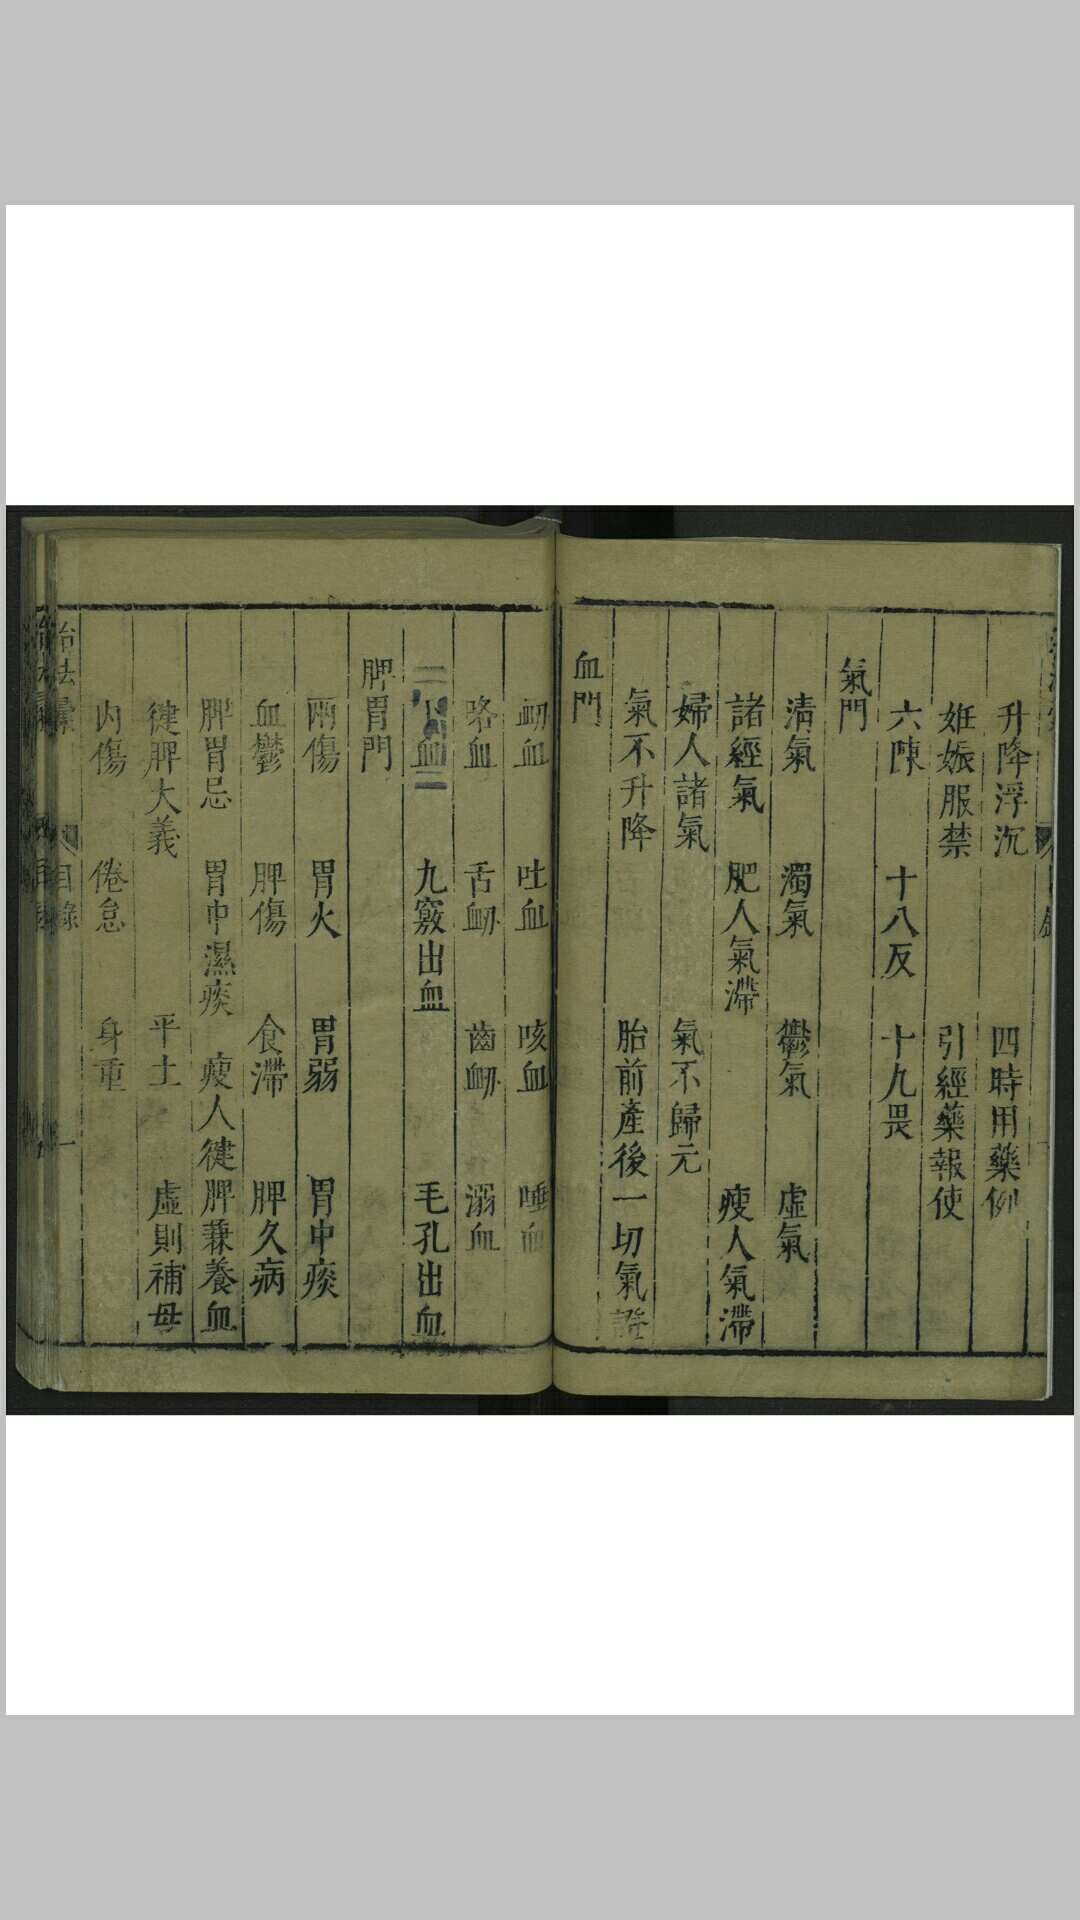 升降浮沉 四時用藥例
姙娠服禁 引經藥報使
六陳 十八反 十九畏
氣門
清氣 濁氣 鬱氣 虛氣
諸經氣 肥人氣滯 瘦人氣滯
婦人諸氣 氣不歸元
氣不升降 胎前產後一切氣證
血門
衂血 吐血 咳血 唾血
咯血 舌衂 齒衂 溺血
血 九竅出血 毛孔出血
脾胃門
兩傷 胃火 胃弱 胃中痰
血鬱 脾傷 食滯 脾久病
脾胃忌 胃中濕痰 瘦人健脾蒹養血
健脾大義 平土 虛則補母
内傷 倦怠 身重
治法彙 目錄 一